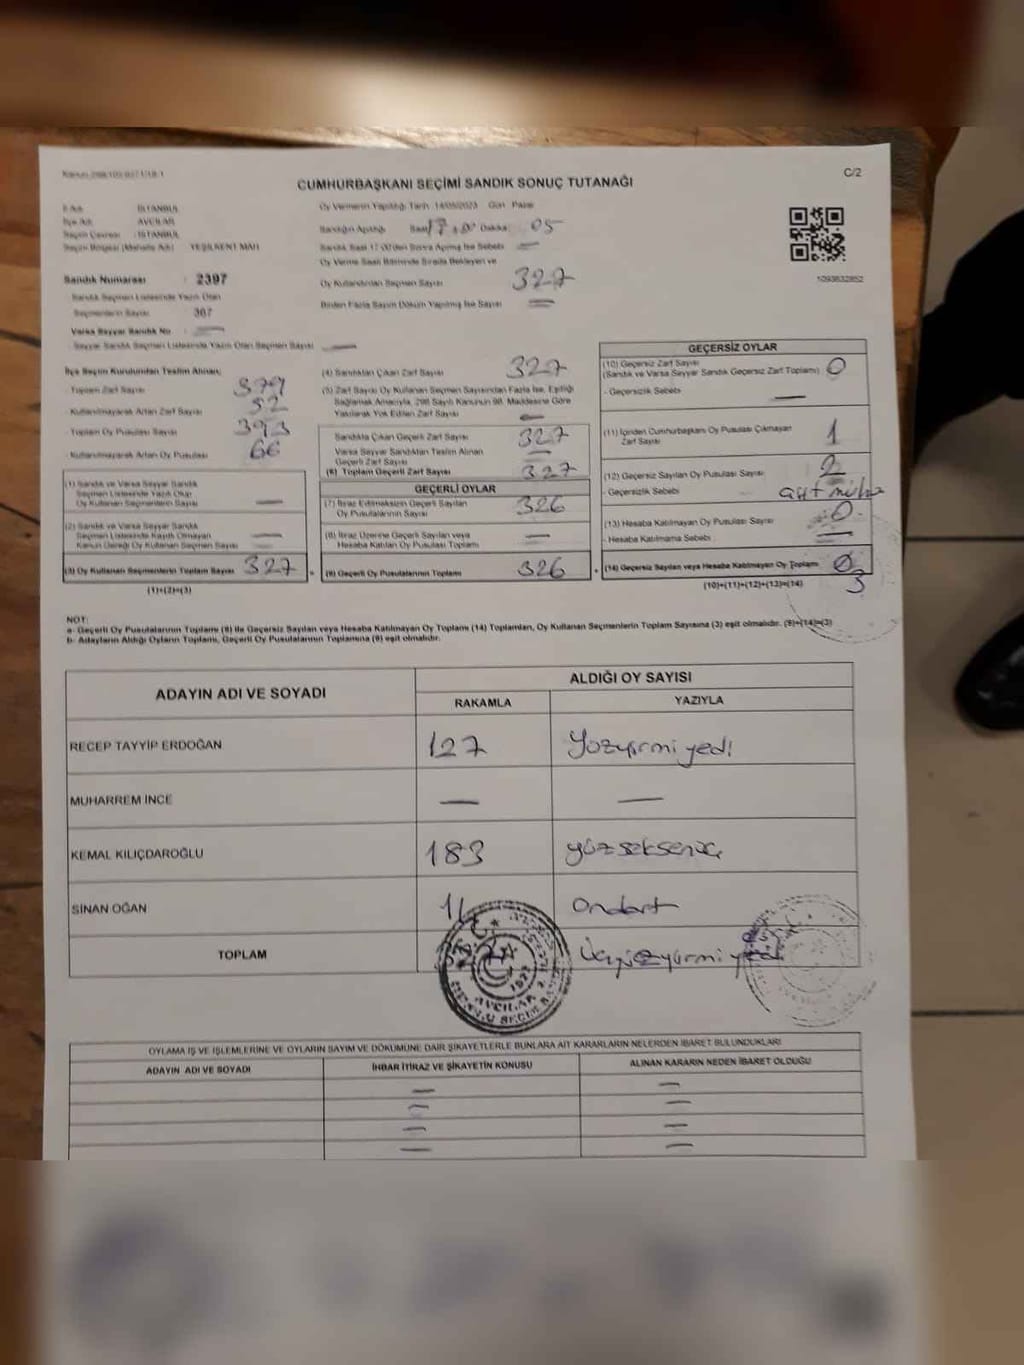 CUMHURBAŞKANI SEÇİMİ SANDIK SONUÇ TUTANAĞI
C/2
İSTANBUL
Oy Vermenin Yapıldığı Tarih 14/05/2023 Gün Pazar
İlçe Adı AVCILAR
Sandığın Açıldığı Saat 17:00 Dakika: 05
Seçim Çevresi İSTANBUL
Seçim Bölgesi (Mahalle Adı) YEŞİLKENT MAH
Sandık Saat 17:00'den Sonra Açılmış İse Sebebi —
Oy Verme Saati Bitiminde Sırada Bekleyen ve
Oy Kullandırılan Seçmen Sayısı 327
1093632852
Sandık Numarası : 2397
Sandık Seçmen Listesinde Yazılı Olan
Seçmenlerin Sayısı 367
Birden Fazla Sayım Döküm Yapılmış İse Sayısı —
Varsa Seyyar Sandık No —
- Seyyar Sandık Seçmen Listesinde Yazılı Olan Seçmen Sayısı —
İlçe Seçim Kurulundan Teslim Alınan;
- Toplam Zarf Sayısı 379
- Kullanılmayarak Artan Zarf Sayısı 52
- Toplam Oy Pusulası Sayısı 393
- Kullanılmayarak Artan Oy Pusulası 66
(1) Sandık ve Varsa Seyyar Sandık
Seçmen Listesinde Yazılı Olup
Oy Kullanan Seçmenlerin Sayısı —
(2) Sandık ve Varsa Seyyar Sandık
Seçmen Listesinde Kayıtlı Olmayan
Kanun Gereği Oy Kullanan Seçmen Sayısı —
(3) Oy Kullanan Seçmenlerin Toplam Sayısı 327
(1)+(2)=(3)
(4) Sandıktan Çıkan Zarf Sayısı 327
(5) Zarf Sayısı Oy Kullanan Seçmen Sayısından Fazla İse, Eşitliği
Sağlamak Amacıyla, 298 Sayılı Kanunun 98. Maddesine Göre
Yakılarak Yok Edilen Zarf Sayısı —
Sandıkta Çıkan Geçerli Zarf Sayısı 327
Varsa Seyyar Sandıktan Teslim Alınan
Geçerli Zarf Sayısı —
(6) Toplam Geçerli Zarf Sayısı 327
GEÇERLİ OYLAR
(7) İtiraz Edilmeksizin Geçerli Sayılan
Oy Pusulalarının Sayısı 326
(8) İtiraz Üzerine Geçerli Sayılan veya
Hesaba Katılan Oy Pusulası Toplamı —
(9) Geçerli Oy Pusulalarının Toplamı 326
GEÇERSİZ OYLAR
(10) Geçersiz Zarf Sayısı
(Sandık ve Varsa Seyyar Sandık Geçersiz Zarf Toplamı) 0
- Geçersizlik Sebebi —
(11) İçinden Cumhurbaşkanı Oy Pusulası Çıkmayan
Zarf Sayısı 1
(12) Geçersiz Sayılan Oy Pusulası Sayısı 2
- Geçersizlik Sebebi
(13) Hesaba Katılmayan Oy Pusulası Sayısı 0
- Hesaba Katılmama Sebebi —
(14) Geçersiz Sayılan veya Hesaba Katılmayan Oy Toplamı 0
3
(10)+(11)+(12)+(13)=(14)
NOT:
a- Geçerli Oy Pusulalarının Toplamı (9) ile Geçersiz Sayılan veya Hesaba Katılmayan Oy Toplamı (14) Toplamları, Oy Kullanan Seçmenlerin Toplam Sayısına (3) eşit olmalıdır. (9)+(14)=(3)
b- Adayların Aldığı Oyların Toplamı, Geçerli Oy Pusulalarının Toplamına (9) eşit olmalıdır.
ADAYIN ADI VE SOYADI
ALDIĞI OY SAYISI
RAKAMLA YAZIYLA
RECEP TAYYİP ERDOĞAN 127 Yüzyirmi yedi
MUHARREM İNCE — —
KEMAL KILIÇDAROĞLU 183 yüzseksenüç
SİNAN OĞAN Ondört
TOPLAM Üçyüzyirmi yedi
AVCILAR
OYLAMA İŞ VE İŞLEMLERİNE VE OYLARIN SAYIM VE DÖKÜMÜNE DAİR ŞİKAYETLERLE BUNLARA AİT KARARLARIN NELERDEN İBARET BULUNDUKLARI
ADAYIN ADI VE SOYADI İHBAR İTİRAZ VE ŞİKAYETİN KONUSU ALINAN KARARIN NEDEN İBARET OLDUĞU
— —
— —
— —
— —